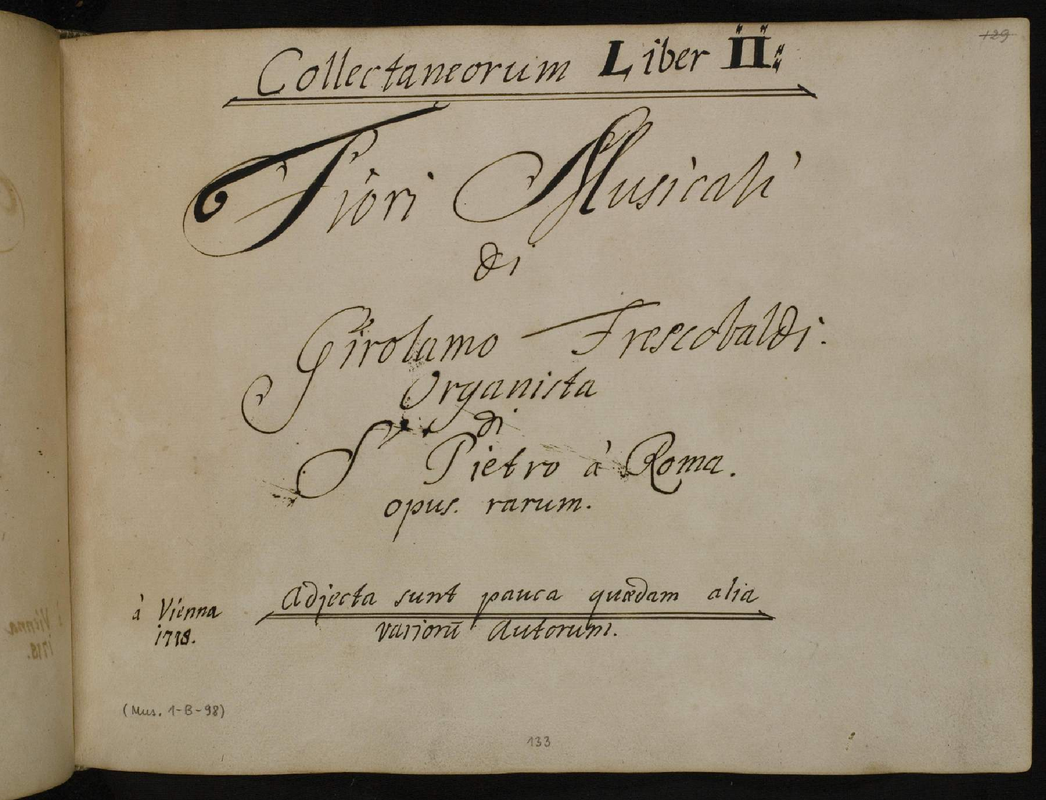 129
Collectaneorum Liber II:
Fiori Musicali
di
Girolamo Frescobaldi.
Organista
di
S. Pietro à Roma.
opus. rarum.
Adjecta sunt pauca quædam alia
variorū Autorum.
à Vienna
1718.
(Mus. 1-B-98)
133